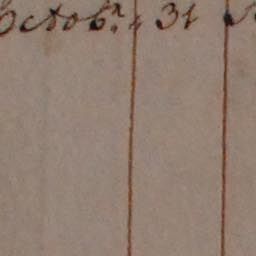 Octobr. 31